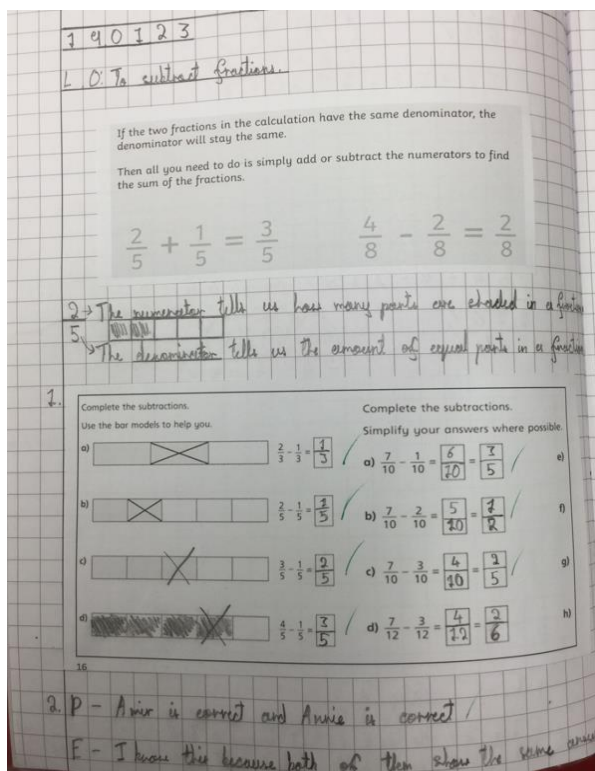 190123
L O: To subtract fractions.
If the two fractions in the calculation have the same denominator, the
denominator will stay the same.
Then all you need to do is simply add or subtract the numerators to find
the sum of the fractions.
2/5 + 1/5 = 3/5 4/8 - 2/8 = 2/8
2/5 → The numerator tells us how many parts are shaded in a fraction
→ The denominator tells us the amount of equal parts in a fraction
1.
Complete the subtractions. Complete the subtractions.
Use the bar models to help you. Simplify your answers where possible.
a) 2/3 - 1/3 = 1/3 a) 7/10 - 1/10 = 6/10 = 3/5 e)
b) 2/5 - 1/5 = 1/5 b) 7/10 - 2/10 = 5/10 = 1/2 f)
c) 3/5 - 1/5 = 2/5 c) 7/10 - 3/10 = 4/10 = 2/5 g)
d) 4/5 - 1/5 = 3/5 d) 7/12 - 3/12 = 4/12 = 2/6 h)
16
2. P - Amir is correct and Annie is correct
E - I know this because both of them show the same